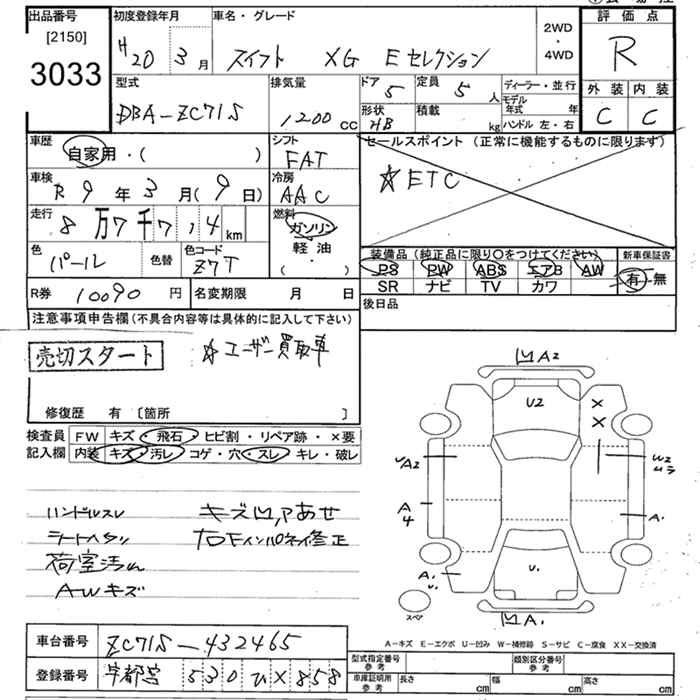 出品番号 初度登録年月 車名・グレード 2WD・4WD 評価点
[2150]
3033 H20 3月 スイフト XG Eセレクション R
型式 排気量 ドア 5 定員 5人 ディーラー・並行 外装 内装
DBA-ZC71S 1200cc 形状 HB 積載 kg モデル年式 年 C C
ハンドル 左・右
車歴 シフト セールスポイント (正常に機能するものに限ります)
自家用・( ) FAT
車検 冷房 ☆ETC
R9年3月(9日) AAC
走行 燃料
8万7千7,4km ガソリン
軽・油
( )
色 色替 色コード 装備品 (純正品に限り○をつけてください) 新車保証書
パール Z7T PS PW ABS エアB AW 有・無
SR ナビ TV カワ
R券 10090円 名変期限 月 日 後日品
注意事項申告欄 (不具合内容等は具体的に記入して下さい)
売切スタート ☆ユーザー買取車
修復歴 有 [箇所 ]
検査員 FW キズ・飛石・ヒビ割・リペア跡・×要
記入欄 内装 キズ・汚レ・コゲ・穴・スレ・キレ・破レ
ハンドルスレ キズ凹、アあせ
シートヘタリ
荷室汚れ
AWキズ
A2
U2
X
X
A2
W2
ムラ
A
4
A.
A.
U.
U.
A1.
スペア
A-キズ E-エクボ U-凹み W-補修跡 S-サビ C-腐食 XX-交換済
車台番号 ZC71S-432465
型式指定番号 参考 類別区分番号 参考
登録番号 宇都宮 530 ひ×858
車庫証明用 参考 長さ cm 幅 cm 高さ cm